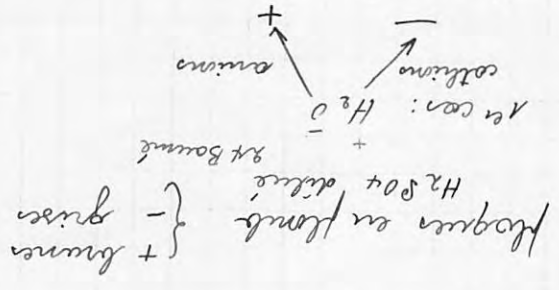 plaques en plomb { + brunes
− grises
H2SO4 dilué
24 Baumé
1er cas : H2O
+ −
cathions anions
− +